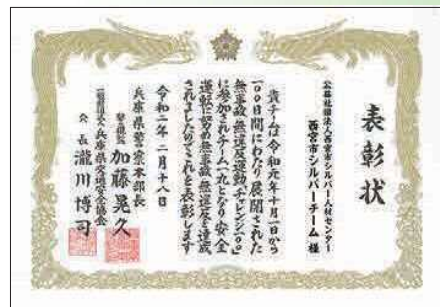 表彰状
公益社団法人西宮市シルバー人材センター
西宮市シルバーチーム 様
貴チームは令和元年十月一日から
一〇〇日間にわたり展開された
無事故・無違反運動「チャレンジ一〇〇」
に参加されチーム一丸となり安全
運転に努め無事故・無違反を達成
されましたのでこれを表彰します
令和二年二月十八日
兵庫県警察本部長
加藤晃久
一般財団法人兵庫県交通安全協会
会長 瀧川博司